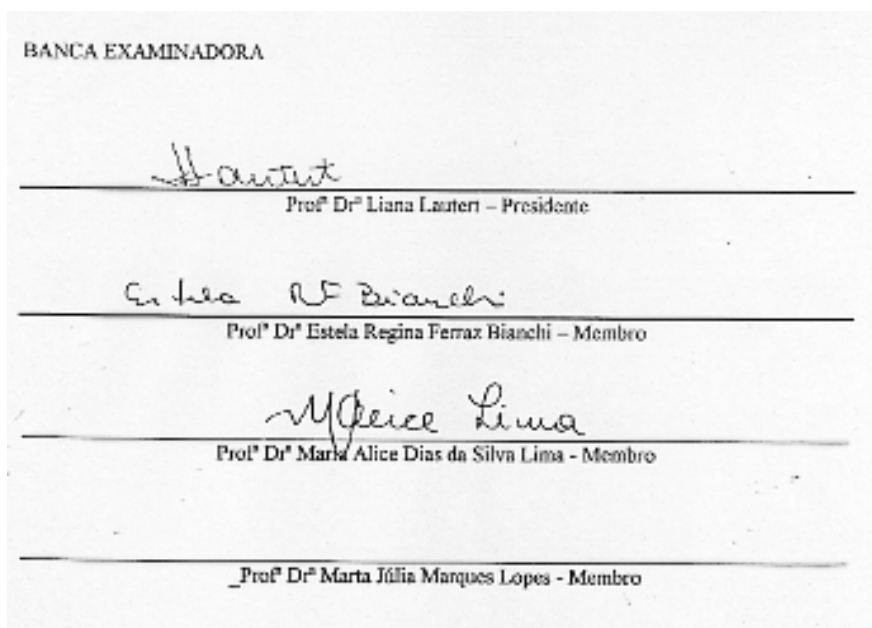 BANCA EXAMINADORA
Lautert
Profª Drª Liana Lautert – Presidente
Estela RF Bianchi
Profª Drª Estela Regina Ferraz Bianchi – Membro
MAlice Lima
Profª Drª Maria Alice Dias da Silva Lima - Membro
_Profª Drª Marta Júlia Marques Lopes - Membro